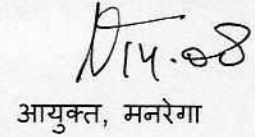 14.08
आयुक्त, मनरेगा